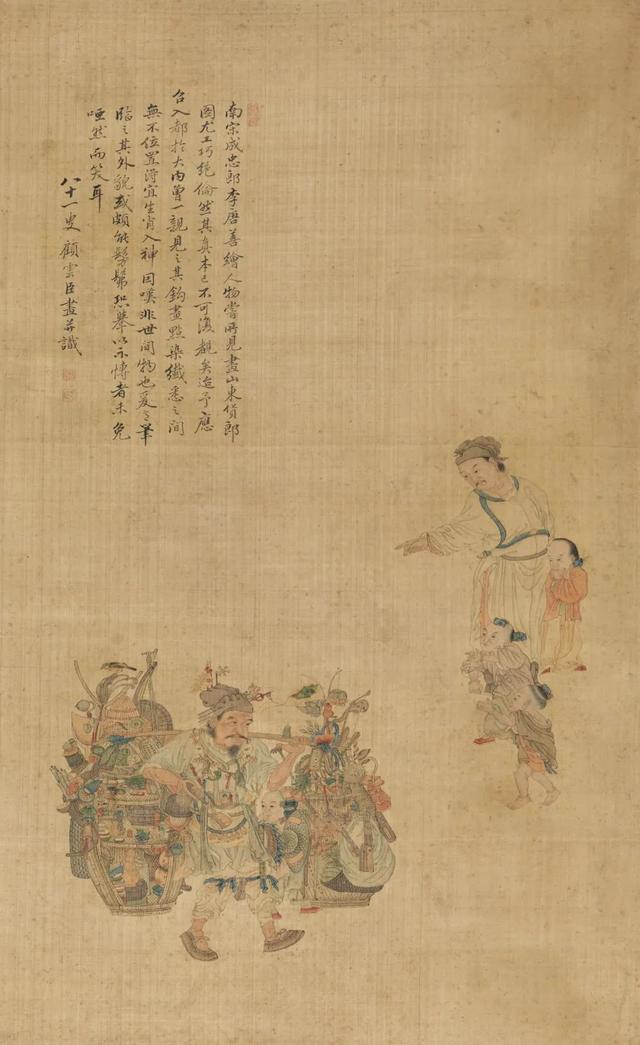 南宗成忠郎李唐善繪人物嘗所見畫山東貨郎
图尤工巧絕倫然其真本已不可復觀矣迨予應
召入都於大內曾一親見之其鈎畫點染纖悉之間
無不位置淂宜生肖入神因嘆非世間物也爰
臨之其外貌或頗能髣髴恐舉以示博者未免
啞然而笑耳
八十一叟顧雲臣畫并識